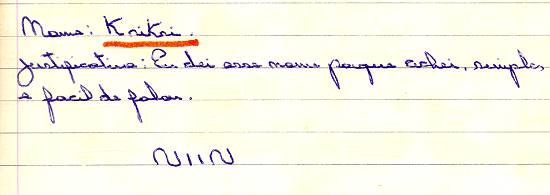 Nome: Krikri.
Justificativa: Eu dei esse nome porque achei, simples
e facil de falar.